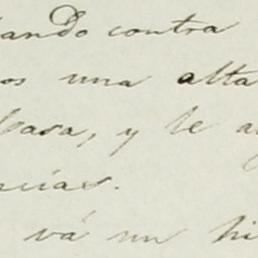 ando contra
os una alta
basa, y le a
ncias.
vá un hi